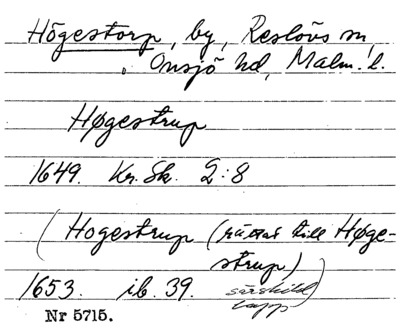 Högestorp, by, Reslövs sn,
Onsjö hd, Malm. l.
Høgestrup
1649. Kr. Sk. 2:8
(Hogestrup (rättat till Høge-
strup)
1653. ib. 39. särskild
lapp)
Nr 5715.